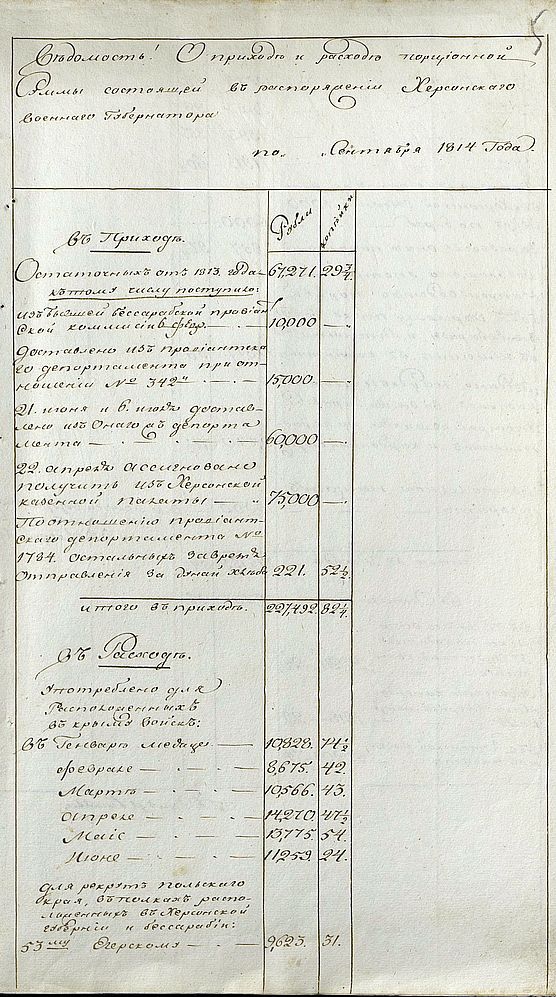 5
Вѣдомость! О приходѣ и расходѣ порціонной
Суммы состоящей въ распоряженіи Херсонскаго
военнаго Губернатора
по „ Сентября 1814 Года.
Рубли копѣйки
Въ Приходѣ.
Остаточныхъ отъ 1813. года 67,271. 29 3/4.
къ тому числу поступило:
изъ бывшей бессарабской провіант
ской коммисіи в февр. 10,000 —„
доставлено изъ провіантска
го департамента при от
ношеніи № 342" 15,000 —„
21. июня и 6. июля достав-
лено изъ Онаго въ депорта
мента — 60,000 —„
22. апреля ассигновано
получить изъ Херсонской
казенной палаты — „ 75,000 —„
По отношенію провіант-
скаго депортамента №
1784. остальныхъ за вре
отправленія за дунай хлѣба 221. 52 1/2.
итого въ приходѣ. 227,492. 82 1/4.
Въ Расходѣ.
Употреблено для
Расположенныхъ
въ крыму войскъ:
Въ Генваръ месяце — 10,828. 74 1/2
февране — 8,675. 42.
Мартѣ — 10,566. 43.
апреле — 14,270. 47 1/2
Маіѣ — 13,775. 54.
Июне — 11,259. 24.
для рекрутъ польскаго
края, въ полкахъ распо-
ложенныхъ въ Херсонской
губерніи и бессарабіи:
53му Егерскому — 9,623. 31.